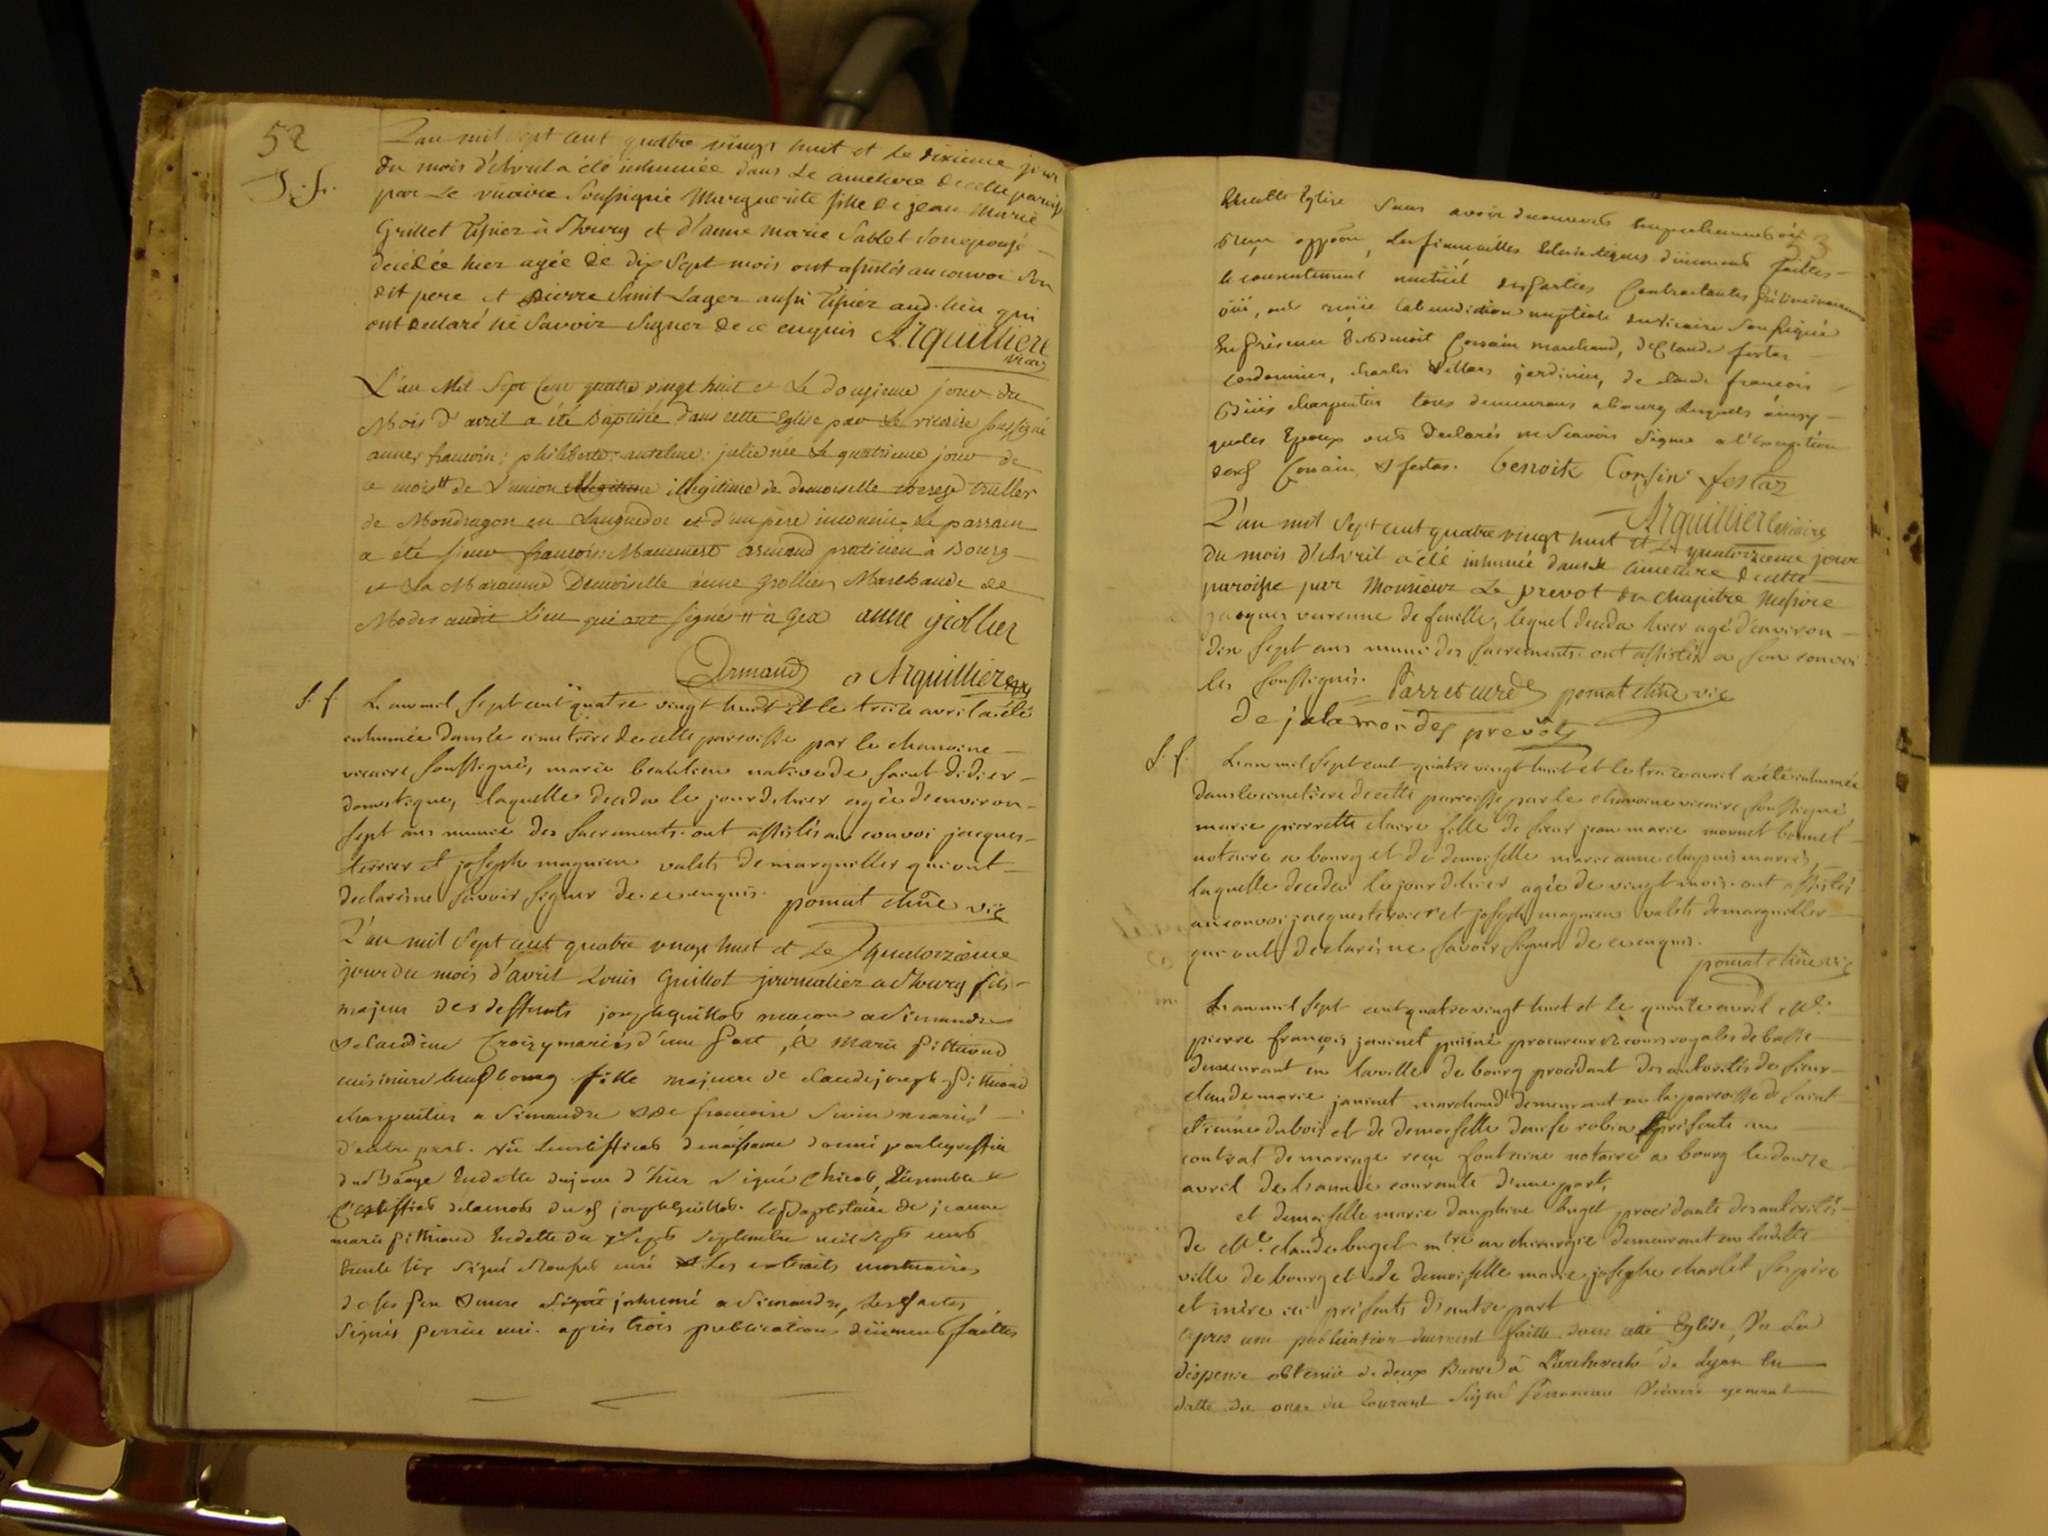 52
L'an mil sept cent quatre vingt huit et le dixieme jour
du mois d'Avril a été inhumée dans le cimetiere de cette paroisse
par le vicaire soussigné Marguerite fille de jean Marie
Grillet tisier à Bourg et d'anne marie Sablet son epouse
decédée hier agée de dix sept mois ont assistés au convoi son
dit pere et pierre Saint Lager aussi tisier aud. lieu qui
ont declaré ne savoir signer de ce enquis Arquilliere
vicaire
L'an Mil Sept Cent quatre vingt huit et Le douzieme jour du
Mois d'avril a été Baptisée dans cette Eglise par Le vicaire soussigné
anne, francoise, philiberte, julie née Le quatrieme jour de
ce mois de L'union illegitime de demoiselle therese truller
de Mondragon en Languedoc et d'un père inconnu. Le parrain
a été sieur francois Armand praticien à Bourg
et La Maraine Demoiselle anne grollier Marchande de
Modes audit Lieu qui ont signés à Gex anne grollier
Armand Arquilliere
S. f. L'an mil sept cent quatre vingt huit et le treize avril a été
inhumée dans le cimetiere de cette paroisse par le chanoine
vicaire soussigné, marie beaulieu native de saint didier
domestique, laquelle deceda le jour d'hier agée d'environ
sept ans munie des sacrements. ont assistés au convoi jacques
terrier et joseph magnien valets de marguiller qui ont
declarés ne savoir signer de ce enquis. pomat chne vic
L'an mil sept cent quatre vingt huit et Le quatorzieme
jour du mois d'avril Louis Guillot journalier a Bourg fils
majeur des deffunts joseph guillot macon a Simandre
& claudine Croizy mariés d'une part, & Marie pithioud
cuisiniere bourg fille majeure de claude joseph pithioud
charpentier a Simandre & de francoise mariés
d'autre part. vu le certifficat de naissance donné par le greffier
du Bage en datte du jour d'hier signé Chicod, Ensemble
joseph guillot. de jeanne
marie pithioud En datte du septembre mil sept cent
trente six signé curé & Les extraits mortuaires
de ses pere & mere a Simandre,
signés perrin curé. apres trois publications düement faittes
53
En cette Eglise sans avoir decouvert empechement
opp.on, Les fiancailles Eclesiastiques düement faittes
le consentement mutüel des parties Contractantes
oüi, ont recüe la benediction nuptiale du vicaire soussigné
En présence de Benoit Corsain marchand, de Claude festaz
cordonnier, charles Villars jardinier, de claude francois
charpentier tous demeurans a bourg Lesquels ainsy
que les Epoux ont declarés ne Scavoir Signer a l'Exception
desd Corsain & festaz. benoitk Corsin festaz
Arquilliere vicaire
L'an mil sept cent quatre vingt huit et Le quatorzieme jour
du mois d'Avril a été inhumé dans le cimetiere de cette
paroisse par Monsieur Le prevot du chapitre Messire
jacques varenne de fenille, lequel deceda hier agé d'environ
dix sept ans muni des sacrements. ont assistés a son convoi
les soussignés. parret curé pomat chne vic
de jalamondes prevôt
S. f. L'an mil sept cent quatre vingt huit et le treize avril a été inhumée
dans le cimetiere de cette paroisse par le chanoine vicaire soussigné
marie pierrette claire fille de sieur jean marie mornet bonnet
notaire a bourg et de demoiselle marie anne chapuis mariés,
laquelle deceda le jour d'hier agée de vingt mois. ont assistés
au convoi jacques terrier et joseph magnien valets de marguiller
qui ont declarés ne savoir signer de ce enquis.
pomat chne vic
L'an mil sept cent quatre vingt huit et le quinze avril Me.
pierre françois janinet puisné procureur es cours royales de bresse
demeurant en la ville de bourg procédant des autorités de sieur
claude marie janinet marchand demeurant en la paroisse de saint
etienne du bois et de demoiselle denise robin présente au
contrat de mariage reçu fontaine notaire a bourg le douze
avril de l'année courante d'une part,
et demoiselle marie dauphine buget procédante des autorités
de Me. claude buget mtre en chirurgie demeurant en ladite
ville de bourg et de demoiselle marie josephe charlet ses pere
et mère ici présents d'autre part
apres une publication duement faitte dans cette Eglise, Vu La
dispense obtenüe de deux Bancs à L'archeveché de Lyon En
datte du onze du courant signé vicaire general